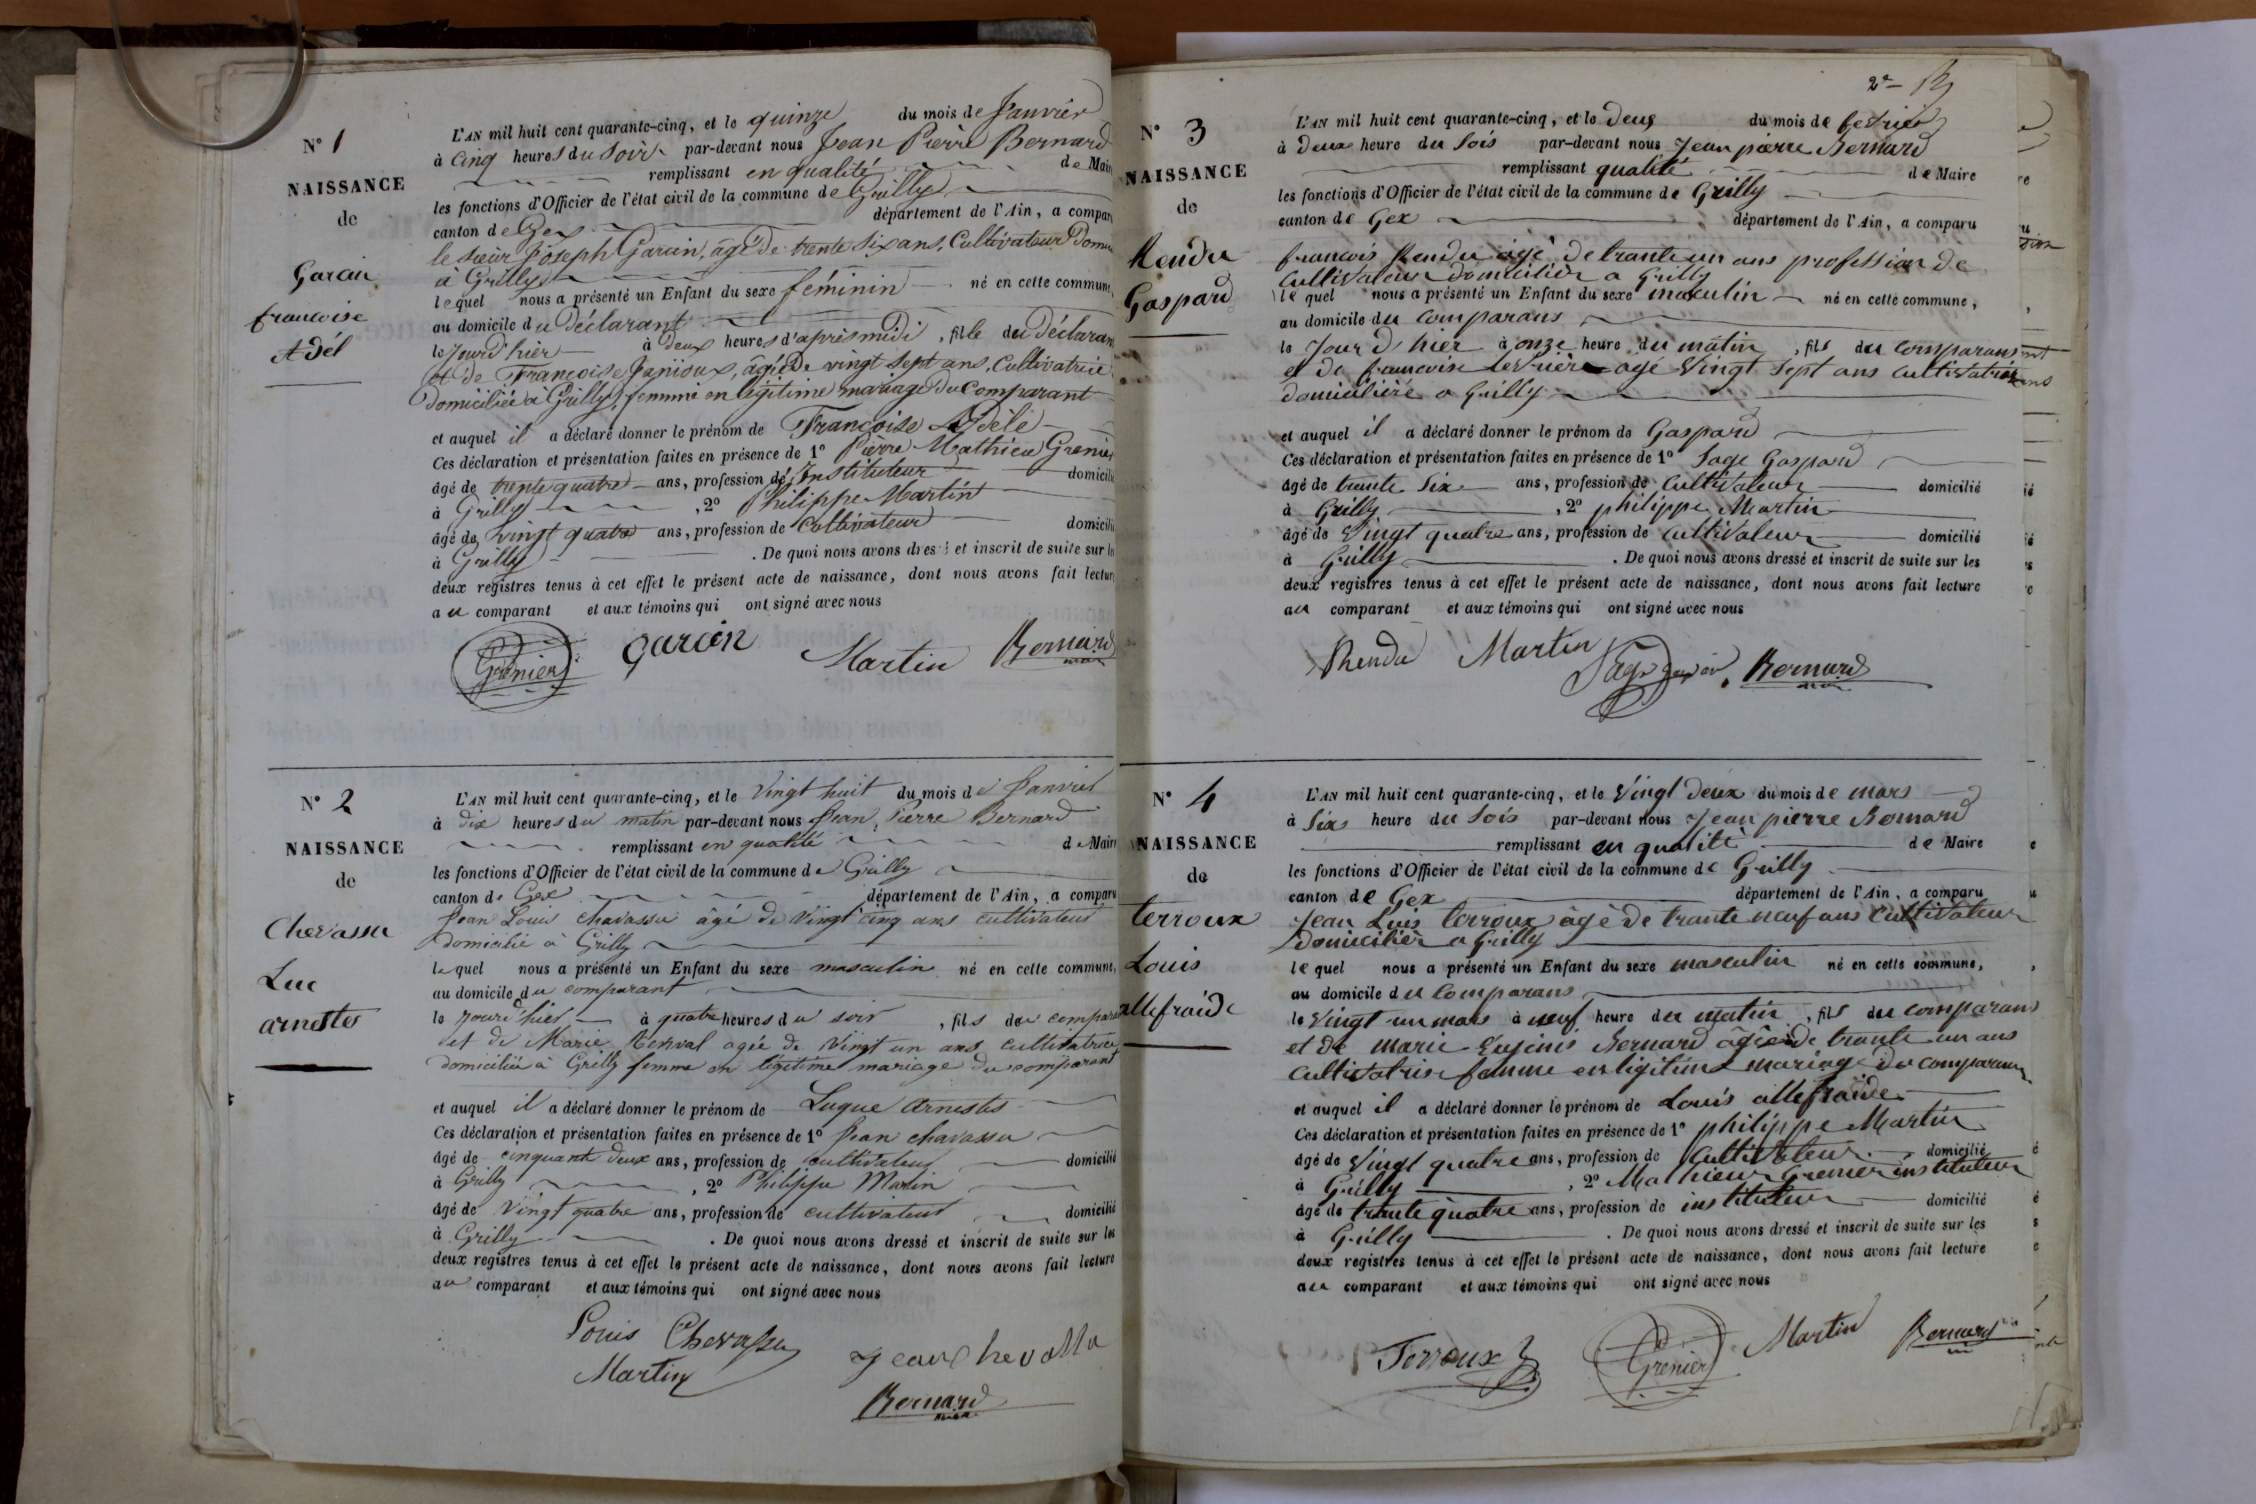 N° 1
NAISSANCE
de
Garain
francoise
Adél
L'AN mil huit cent quarante-cinq, et le quinze du mois de Janvier
à cinq heures du Soir par-devant nous Jean Pierre Bernard
remplissant en qualité de Maire
les fonctions d'Officier de l'état civil de la commune de Grilly
canton de Gex département de l'Ain, a comparu
le sieur Joseph Garain, âgé de trente six ans, Cultivateur Domi
à Grilly
lequel nous a présenté un Enfant du sexe féminin né en cette commune,
au domicile du Déclarant
le Jourd'hier à deux heures d'après midi, fille du déclarant
et de Françoise Janioux, âgée De vingt sept ans, Cultivatrice
domiciliée à Grilly, femme en légitime mariage Du Comparant
et auquel il a déclaré donner le prénom de Françoise Adèle
Ces déclaration et présentation faites en présence de 1° Pierre Mathieu Grenier
âgé de trente quatre ans, profession de Instituteur domicilié
à Grilly, 2° Philippe Martin
âgé de vingt quatre ans, profession de Cultivateur domicilié
à Grilly. De quoi nous avons dressé et inscrit de suite sur les
deux registres tenus à cet effet le présent acte de naissance, dont nous avons fait lecture
au comparant et aux témoins qui ont signé avec nous
Grenier garain Martin Bernard
N° 2
NAISSANCE
de
Chevassu
Luc
arnestes
L'AN mil huit cent quarante-cinq, et le Vingt huit du mois de Janvier
à dix heures du matin par-devant nous Jean Pierre Bernard
remplissant en qualité de Maire
les fonctions d'Officier de l'état civil de la commune de Grilly
canton de Gex département de l'Ain, a comparu
Jean Louis chavassu âgé de Vingt cinq ans cultivateur
domicilié à Grilly
lequel nous a présenté un Enfant du sexe masculin né en cette commune,
au domicile du comparant
le jourd'hier à quatre heures du soir, fils du compara
et de Marie agée de Vingt un ans cultivatrice
domiciliée à Grilly femme en légitime mariage du comparant
et auquel il a déclaré donner le prénom de Luque arnestes
Ces déclaration et présentation faites en présence de 1° Jean chavassu
âgé de cinquante deux ans, profession de cultivateur domicilié
à Grilly, 2° Philippe Martin
âgé de Vingt quatre ans, profession de cultivateur domicilié
à Grilly. De quoi nous avons dressé et inscrit de suite sur les
deux registres tenus à cet effet le présent acte de naissance, dont nous avons fait lecture
au comparant et aux témoins qui ont signé avec nous
Louis Chevassu
Martin Jean Chevassu
Bernard
2e
N° 3
NAISSANCE
de
Rendu
Gaspard
L'AN mil huit cent quarante-cinq, et le Deux du mois de fevrier
à deux heure du Sois par-devant nous Jean pierre Bernard
remplissant qualité de Maire
les fonctions d'Officier de l'état civil de la commune de Grilly
canton de Gex département de l'Ain, a comparu
francois Rendu agé de trante un ans profession de
Cultivateur domicilier a Grilly
le quel nous a présenté un Enfant du sexe masculin né en cette commune,
au domicile du comparans
le Jour d'hier à onze heure du matin, fils du comparans
et De francoise agé Vingt Sept ans cultivatrise
domicilière a Grilly
et auquel il a déclaré donner le prénom de Gaspard
Ces déclaration et présentation faites en présence de 1° Sage Gaspard
âgé de trante Six ans, profession de Cultivateur domicilié
à Grilly, 2° philippe Martin
âgé de Vingt quatre ans, profession de Cultivateur domicilié
à Grilly. De quoi nous avons dressé et inscrit de suite sur les
deux registres tenus à cet effet le présent acte de naissance, dont nous avons fait lecture
au comparant et aux témoins qui ont signé avec nous
Rendu Martin Sage Bernard
N° 4
NAISSANCE
de
terroux
Louis
allefraide
L'AN mil huit cent quarante-cinq, et le Vingt deux du mois de mars
à Six heure du Sois par-devant nous Jean pierre Bernard
remplissant en qualité de Maire
les fonctions d'Officier de l'état civil de la commune de Grilly
canton de Gex département de l'Ain, a comparu
Jean Luis terroux âgé de trante neuf ans Cultivateur
Domicilier a Grilly
lequel nous a présenté un Enfant du sexe masculin né en cette commune,
au domicile du Comparans
le Vingt un mars à neuf heure du matin, fils du comparans
et De marie Eujenis Bernard âgée de trante un ans
Cultivatrise femme en ligitime mariage du comparans
et auquel il a déclaré donner le prénom de Louis allefraide
Ces déclaration et présentation faites en présence de 1° philippe Martin
âgé de Vingt quatre ans, profession de Cultivateur domicilié
à Grilly, 2° Mathieu Grenier instituteur
âgé de trante quatre ans, profession de instituteur domicilié
à Grilly. De quoi nous avons dressé et inscrit de suite sur les
deux registres tenus à cet effet le présent acte de naissance, dont nous avons fait lecture
au comparant et aux témoins qui ont signé avec nous
Terroux Grenier Martin Bernard